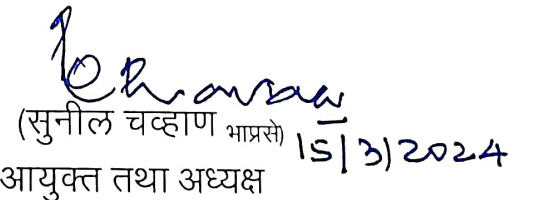 (सुनील चव्हाण भाप्रसे) 15/3/2024
आयुक्त तथा अध्यक्ष